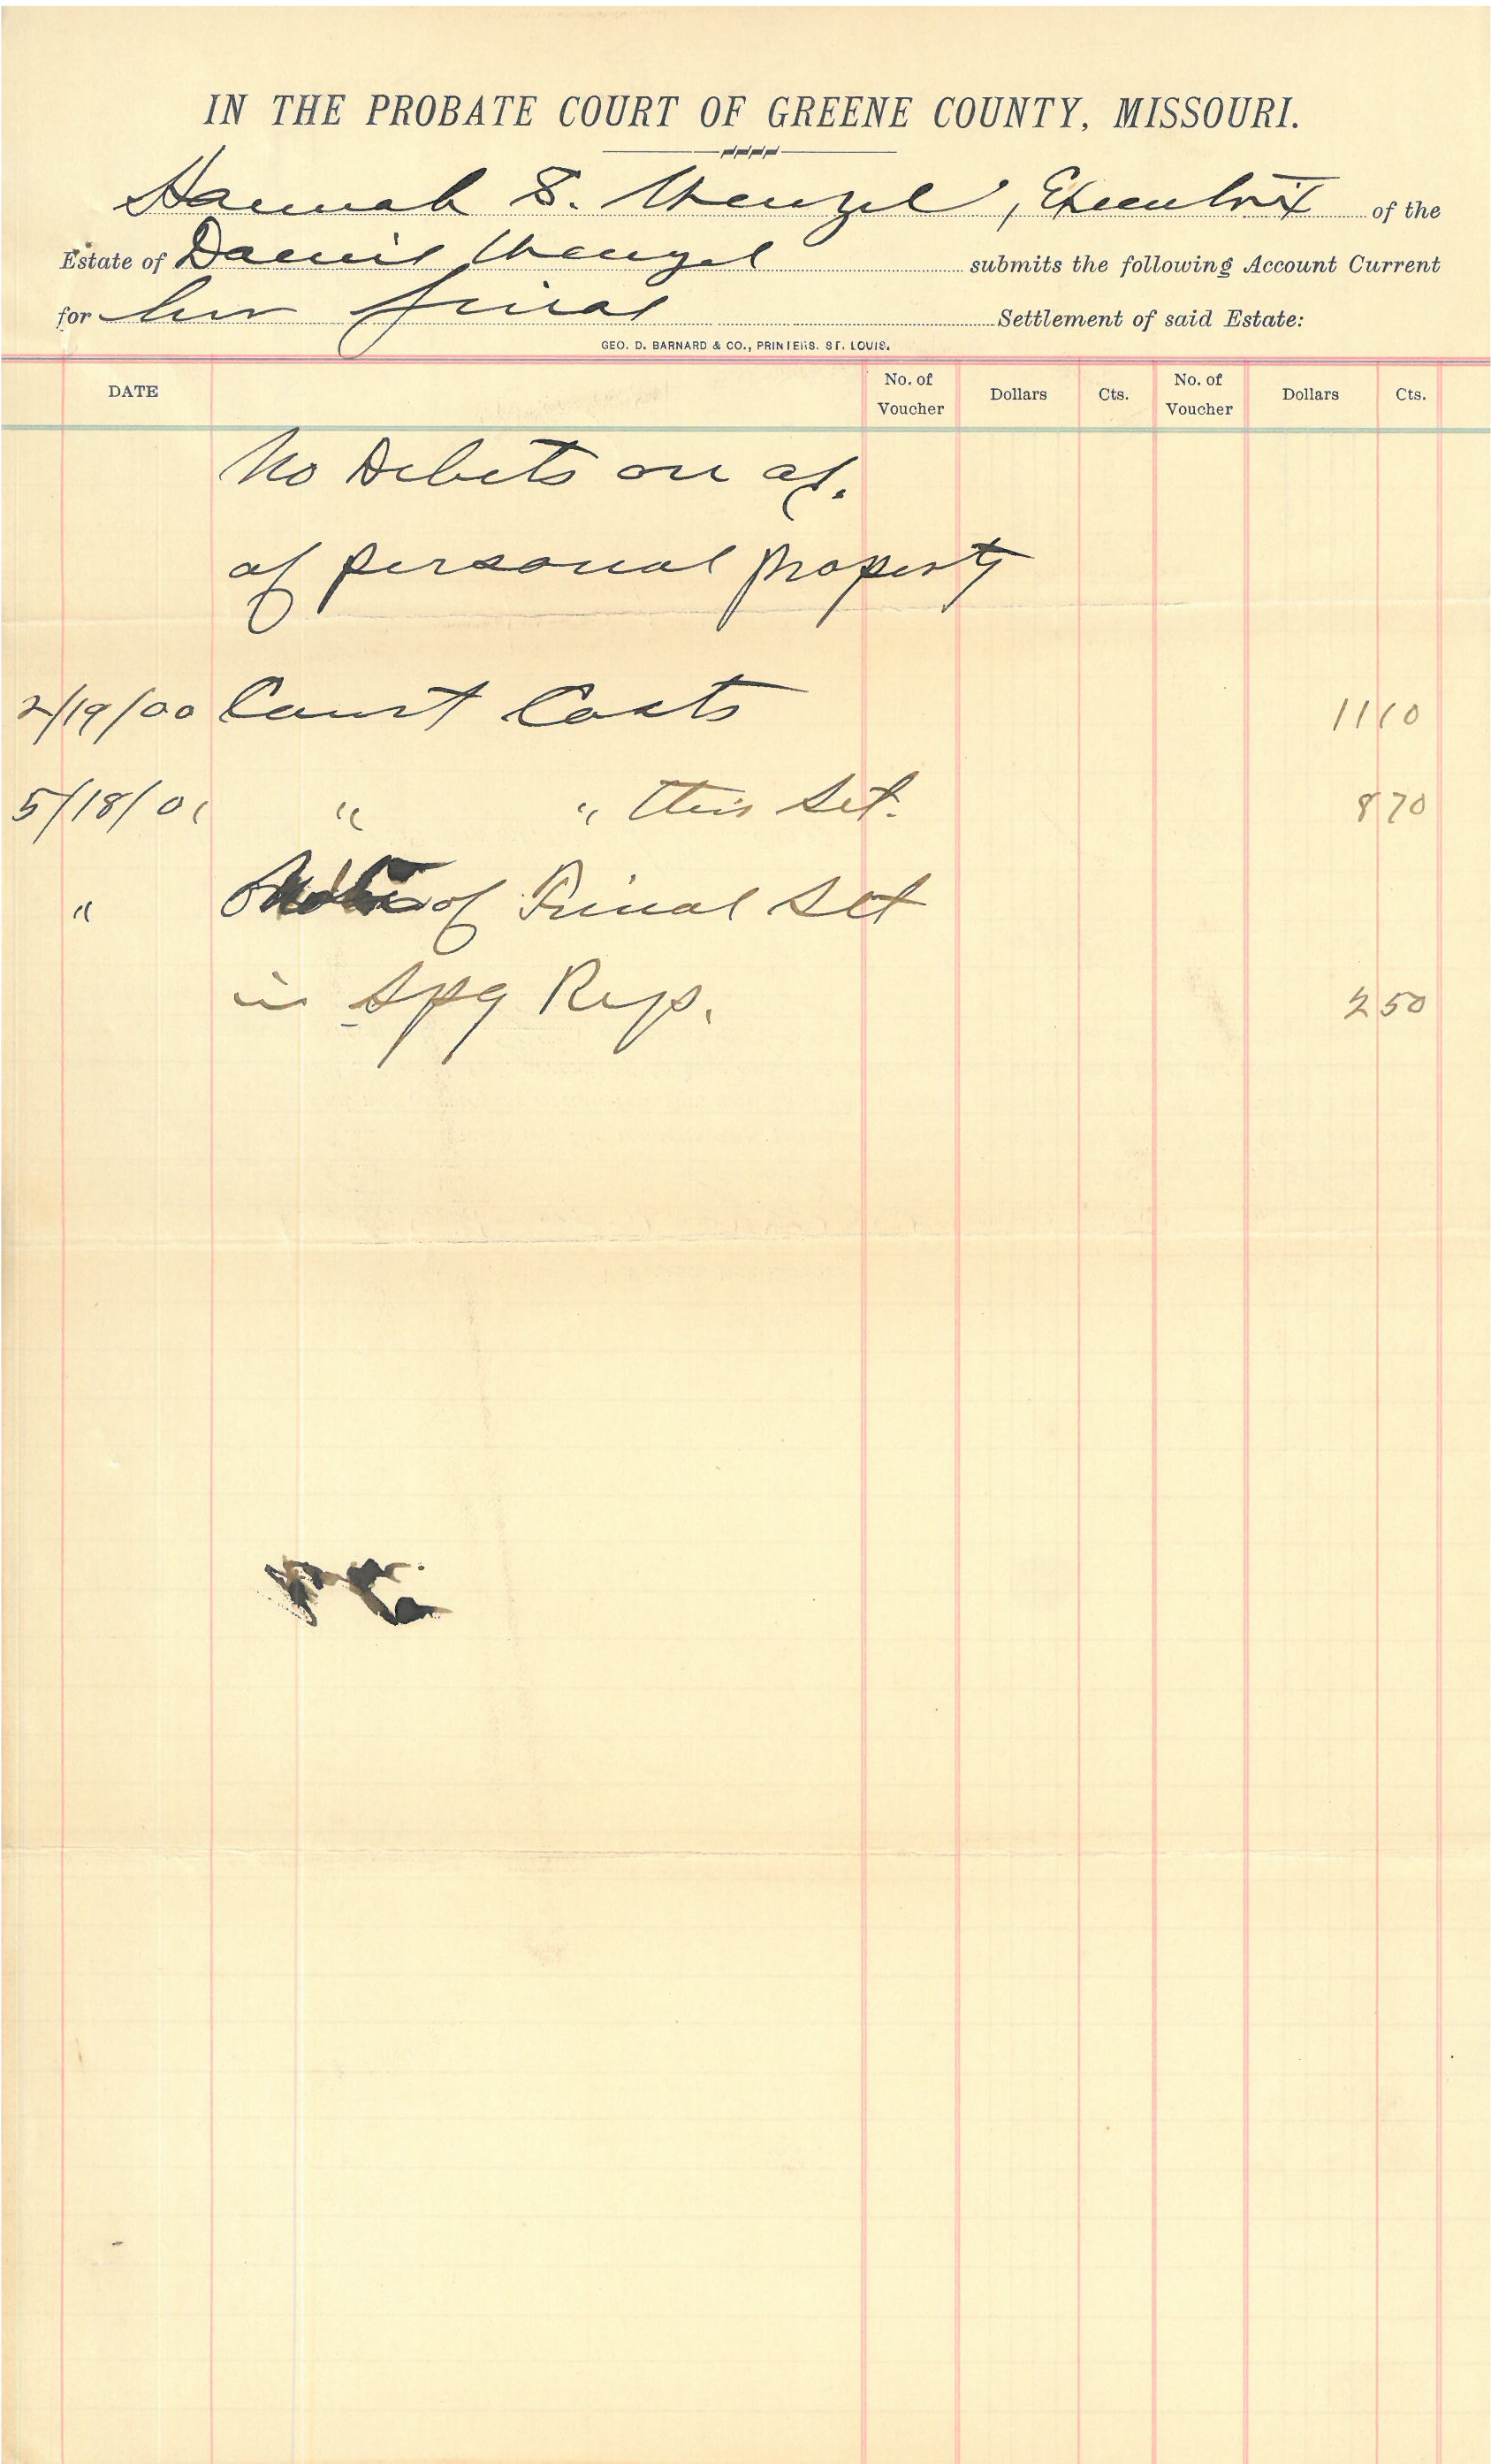 IN THE PROBATE COURT OF GREENE COUNTY, MISSOURI.
Hannah S. Wenzel, Executrix of the
Estate of Daniel Wenzel submits the following Account Current
for her final Settlement of said Estate:
GEO. D. BARNARD & CO., PRINTERS. ST. LOUIS.
DATE No. of Voucher Dollars Cts. No. of Voucher Dollars Cts.
No Debits on a/.
of personal property
2/19/00 Court Costs 11 10
5/18/01 " " this Set. 8 70
" of Final Set
in Spg Rep. 2 50